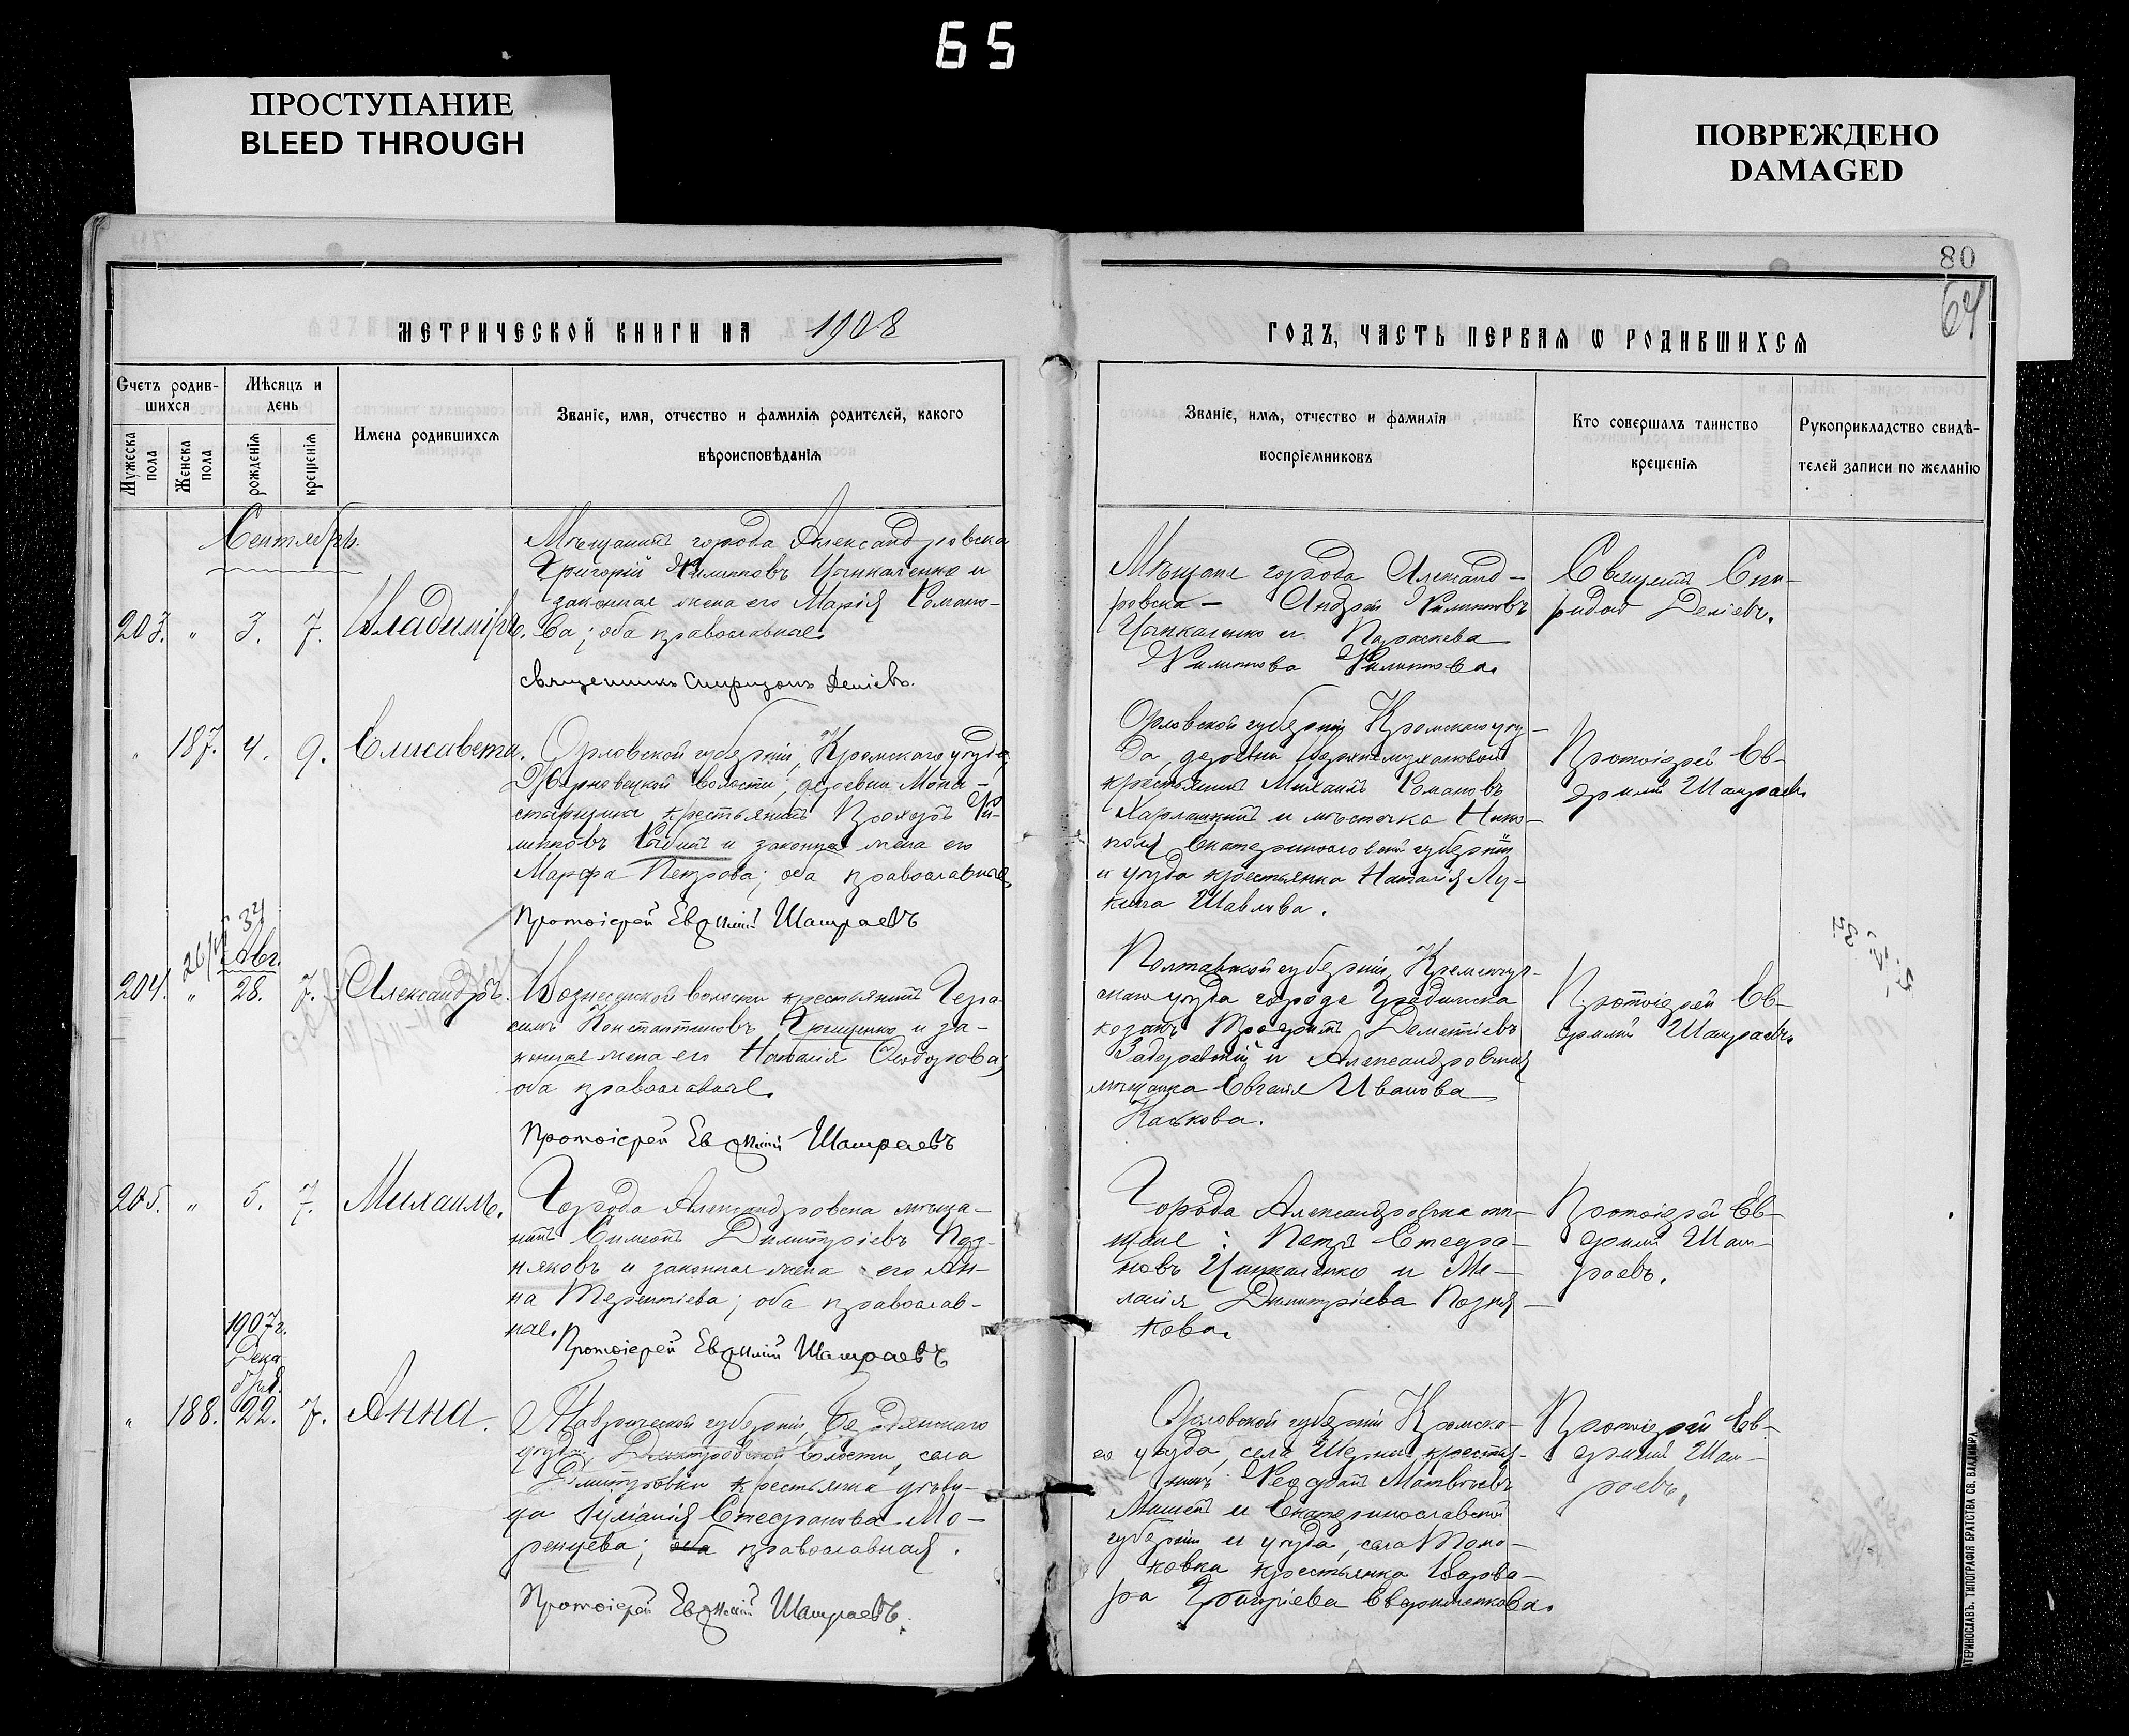 65
ПРОСТУПАНИЕ
BLEED THROUGH
ПОВРЕЖДЕНО
DAMAGED
80
64
МЕТРИЧЕСКОЙ КНИГИ НА 1908
ГОДЪ, ЧАСТЬ ПЕРВАЯ Ѡ РОДИВШИХСЯ
Счетъ родив-
шихся
Мужеска пола
Женска пола
Мѣсяцъ и
день
рожденія
крещенія
Имена родившихся
Званіе, имя, отчество и фамилія родителей, какого
вѣроисповѣданія
Званіе, имя, отчество и фамилія
воспріемниковъ
Кто совершалъ таинство
крещенія
Рукоприкладство свидѣ-
телей записи по желанію
Сентябрь.
203. " 3. 7. Владиміръ.
Мѣщанинъ города Александровска
Григорій Филипповъ Цыпкаленко и
законная жена его Марія Романо-
ва; оба православные.
Священникъ Спиридонъ Деліевъ.
Мѣщане города Александ-
ровска - Андрей Филипповъ
Цыпкаленко и Параскева
Филиппова Филиппова.
Священ. Спи-
ридон Деліевъ.
" 187. 4. 9. Елисавета.
Орловской губерніи, Кромскаго уѣзда,
волости, деревни Мона-
стырщины крестьянинъ Прохоръ Фи-
липповъ и законная жена его
Марфа Петрова; оба православные.
Протоіерей Евѳимій Шашраевъ
Орловской губерніи Кромскаго уѣз-
да, деревни
крестьянинъ Михаилъ Романовъ
и мѣстечка Нико-
поля Екатеринославской губерніи
и уѣзда крестьянка Наталія Лу-
кина Шавлова.
Протоіерей Ев-
ѳимій Шашраевъ.
26/IV 34
Авг.
204. " 28. 7. Александръ.
Вознесенской волости крестьянинъ Гера-
симъ Константиновъ Грищенко и за-
конная жена его Наталія Ѳеодорова;
оба православные.
Протоіерей Евѳимій Шашраевъ
Полтавской губерніи, Кременчуг-
скаго уѣзда города Градижска
козакъ Трофимъ Дометіевъ
и Александровская
мѣщанка Евгенія Иванова
Каськова.
Протоіерей Ев-
ѳимій Шашраевъ.
205. " 5. 7. Михаилъ.
Города Александровска мѣща-
нинъ Симеонъ Димитріевъ Поз-
няковъ и законная жена его Ан-
на Терентіева; оба православ-
ные. Протоіерей Евѳимій Шашраевъ
Города Александровска мѣ-
щане: Петръ Стефа-
новъ Цыпкаленко и Ме-
ланія Димитріева Позня-
кова.
Протоіерей Ев-
ѳимій Шаш-
раевъ.
1907 г.
Дека-
бря.
" 188. 22. 7. Анна.
Таврической губерніи, Бердянскаго
уѣзда, Дмитровской волости, села
Дмитровки крестьянка дѣви-
ца Іуліанія Стефанова Мо-
ренцева; оба православная.
Протоіерей Евѳимій Шашраевъ.
Орловской губерніи Кромска-
го уѣзда, села крестья-
нинъ Ѳеофанъ Матвѣевъ
и Екатеринославской
губерніи и уѣзда, села Тома-
ковки крестьянка Варва-
ра Григоріева
Протоіерей Ев-
ѳимій Шаш-
раевъ.
ЕКАТЕРИНОСЛАВЪ. ТИПОГРАФІЯ БРАТСТВА СВ. ВЛАДИМІРА